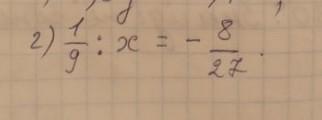 2) 1/9 : x = - 8/27.